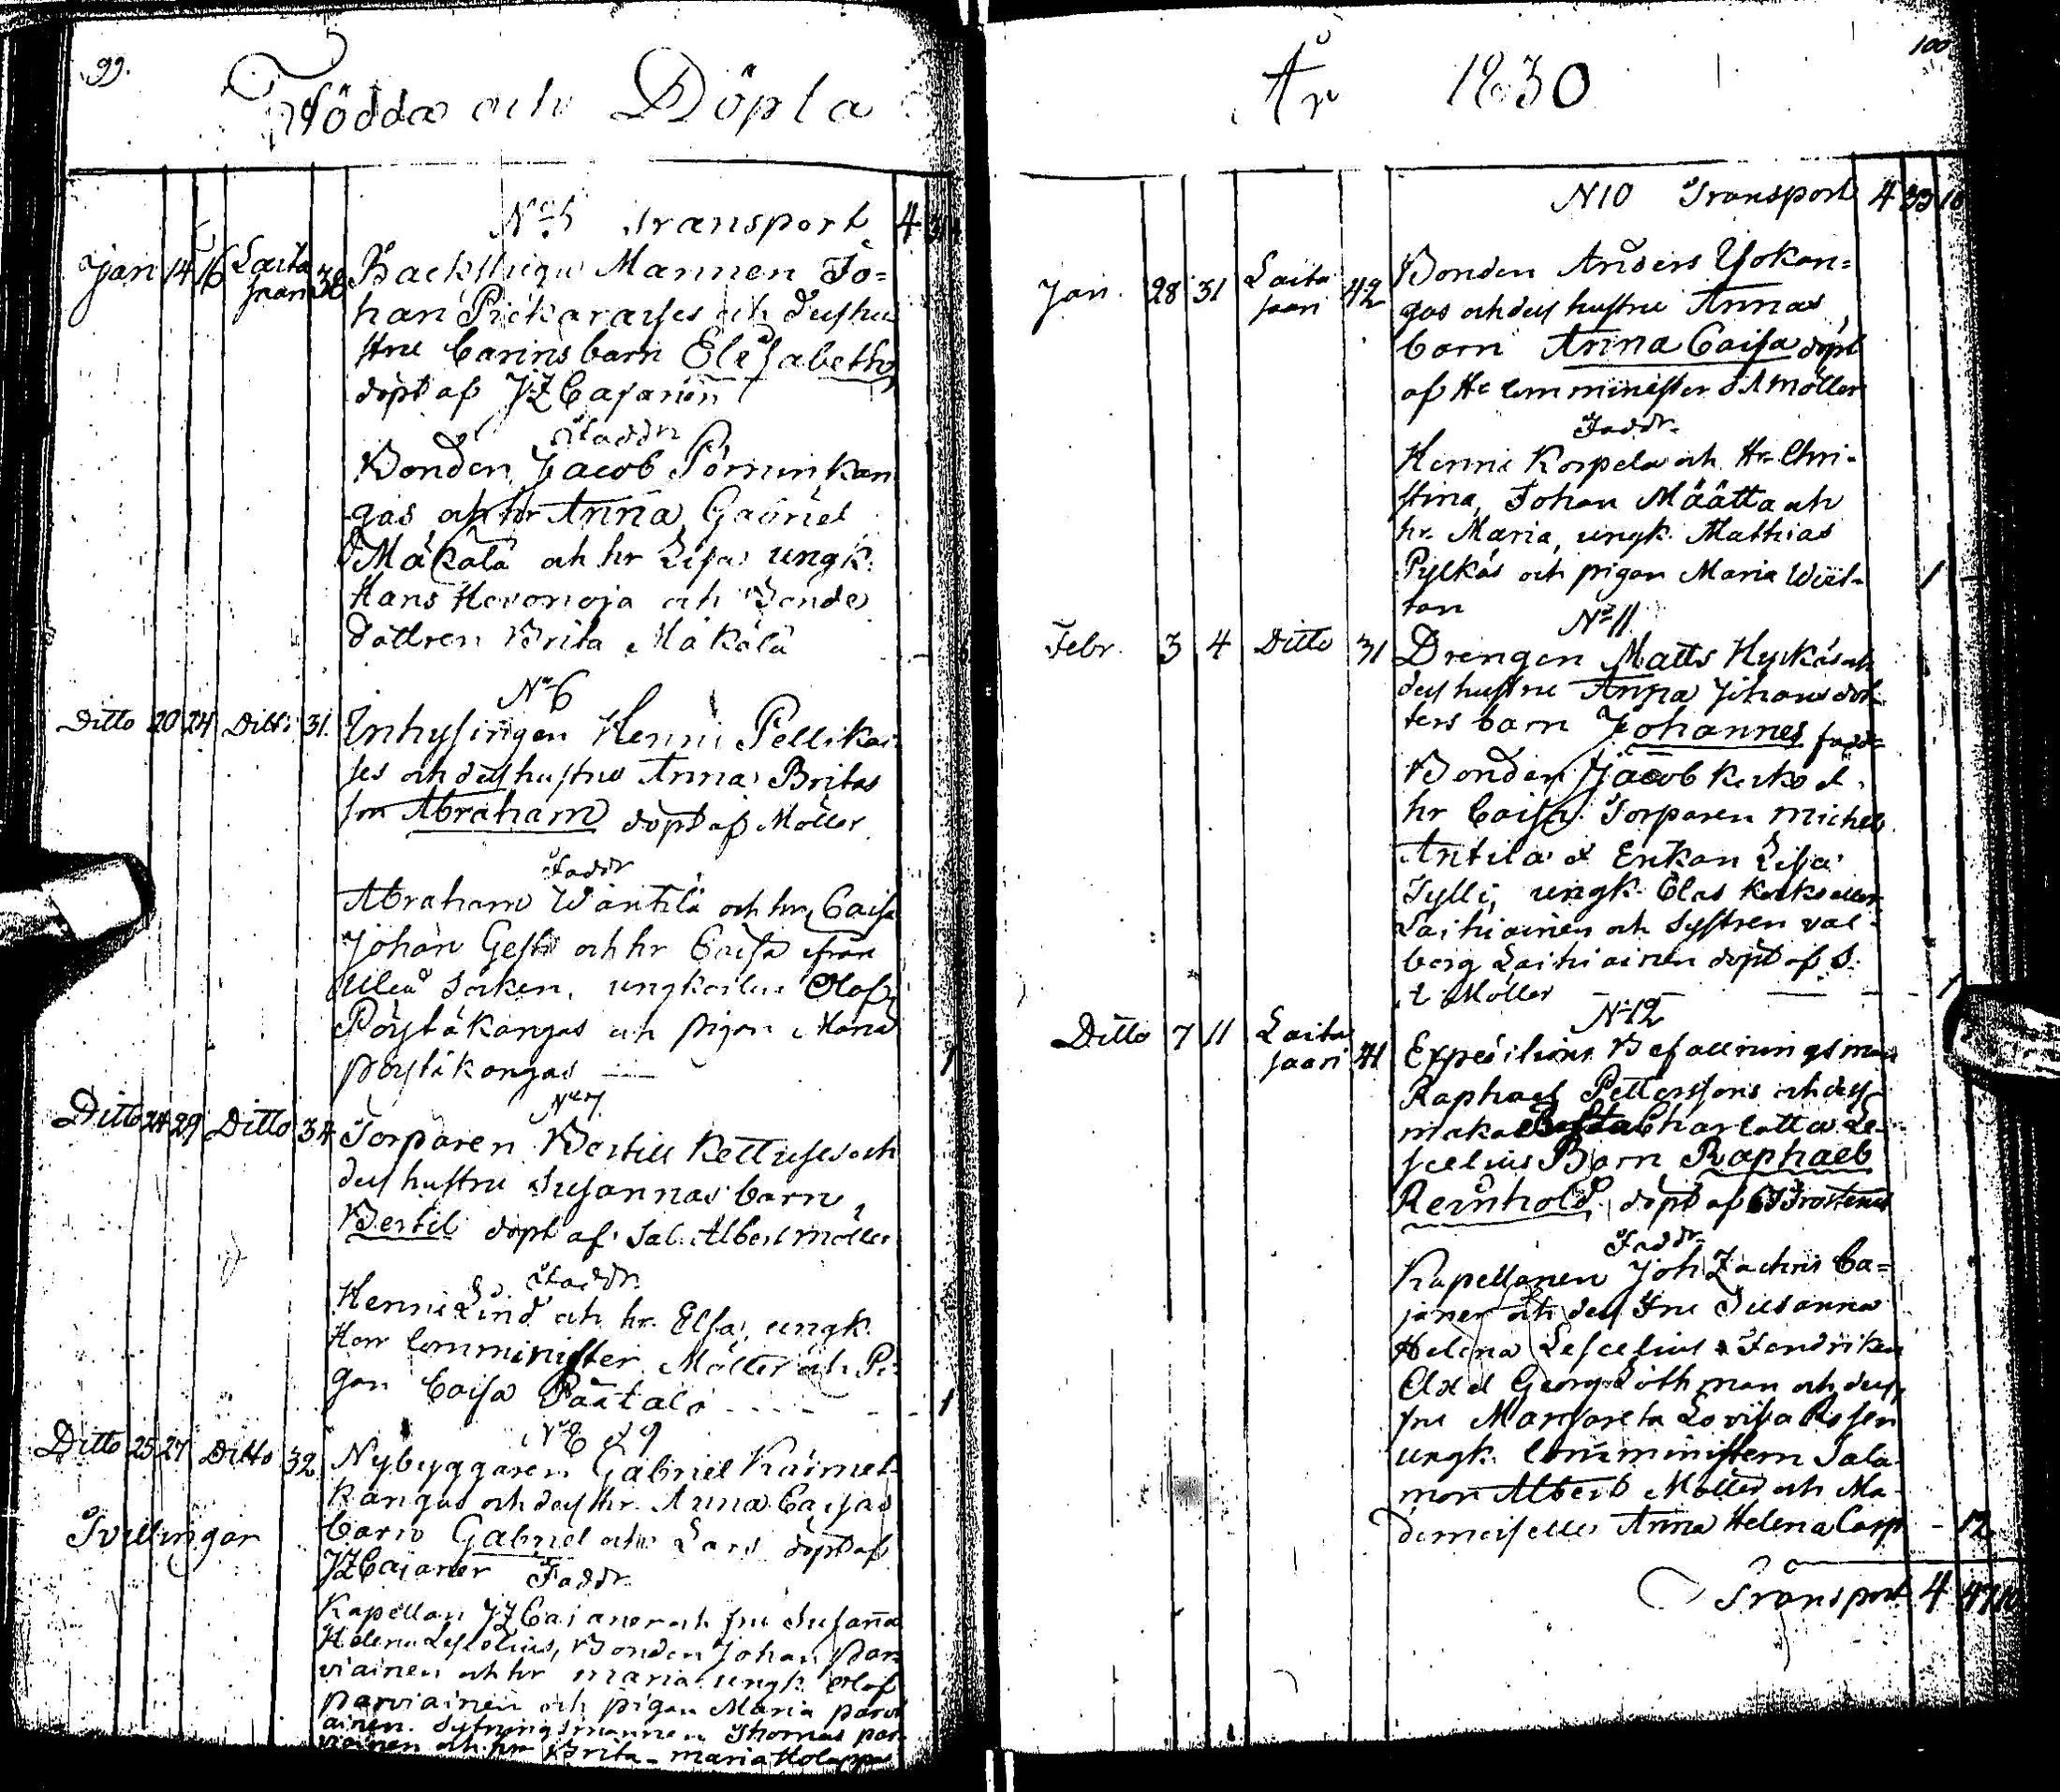 99.
Födda och Döpta
No 5 Transport 4
Jan 14 16 Laita saari 38 Backstugu Mannen Jo=
han Pickaraises och dess hu
stru Carins barn Elisabeth
döpt af JZ Cajanen
Faddr
Bonden Jacob Törminkan
gas och hr Anna, Gabriel
Mäkälä och hr Lisa ungk.
Hans Hevonoja och Bonde
dottren Brita Mäkälä
No 6
Ditto 20 24 Ditto 31. Inhysingen Henric Pellikai
ses och dess hustru Anna Britas
son Abraham döpt af Möller
Faddr
Abraham Wäntilä och hr Caisa
Johan Gest och hr Caisa från
Uleå socken, ungkarlen Olof
Pöytäkangas och pigan Maria
pöytäkangas
No 7
Ditto 24 29 Ditto 34 Torparen Bertill Kettuses och
dess hustru Susannas barn,
Bertil döpt af Sal. Albert Möller
Faddr.
Henric Lind och hr. Elsa, ungk.
Herr Comminister Möller och Pi=
gan Caisa Päätalo 1
No 8 & 9
Ditto 25 27 Ditto 32 Nybyggaren Gabriel
kangas och dess hr. Anna Caisas
Tvillingar
barn Gabriel och Lars döpt af
JZ Cajaner Faddr.
Kapellan JZ Cajaner och fru Susanna
Helena Lescelius, Bonden Johan Par
viainen och hr maria ungk. Olof
Parviainen och pigan Maria parvi
ainen. Sytningsmannen Thomas par
viainen och hr Brita - maria Holappa
År 1830
100
N 10 Transport 4 33 10
Jan. 28 31 Laita saari 42 Bonden Anders Yokan=
gas och dess hustru Annas
barn Anna Caisa döpt
af Hr Comminister S A Möller
Faddr.
Henric Korpela och Hr Chri-
stina, Johan Määtta och
hr. Maria, ungk. Mathias
Pylkäs och pigan Maria Wiit-
tan
No 11
Febr. 3 4 Ditto 31 Drengen Matts Hyrkäs och
dess hustru Anna Johansdot-
ters barn Johannes fadd=
Bonden Jacob Kesko &
hr Caisa. Torparen Michel
Antila & Enkan Lisa
Tylli, ungk. Elas Kesko eller
Laihiainen och systren val
borg Laihiainen döpt af S.
A Möller
No 12
Ditto 7 11 Laita saari 41 Expeditions Befallningsman
Raphael Petterssons och dess
maka Charlotta Le-
scelius Barn Raphael
Reinhold, döpt af
Faddr.
Kapellanen Joh Zachris Ca=
janer och dess Fru Susanna
Helena Lescelius & Fendriken
Axel Georg Löthman och dess
fru Margareta Lovisa Rosen
ungk. Comministern Sala
mon Albert Möller och Ma
demoiselle Anna Helena Carp - 12
Transport 4 47 10